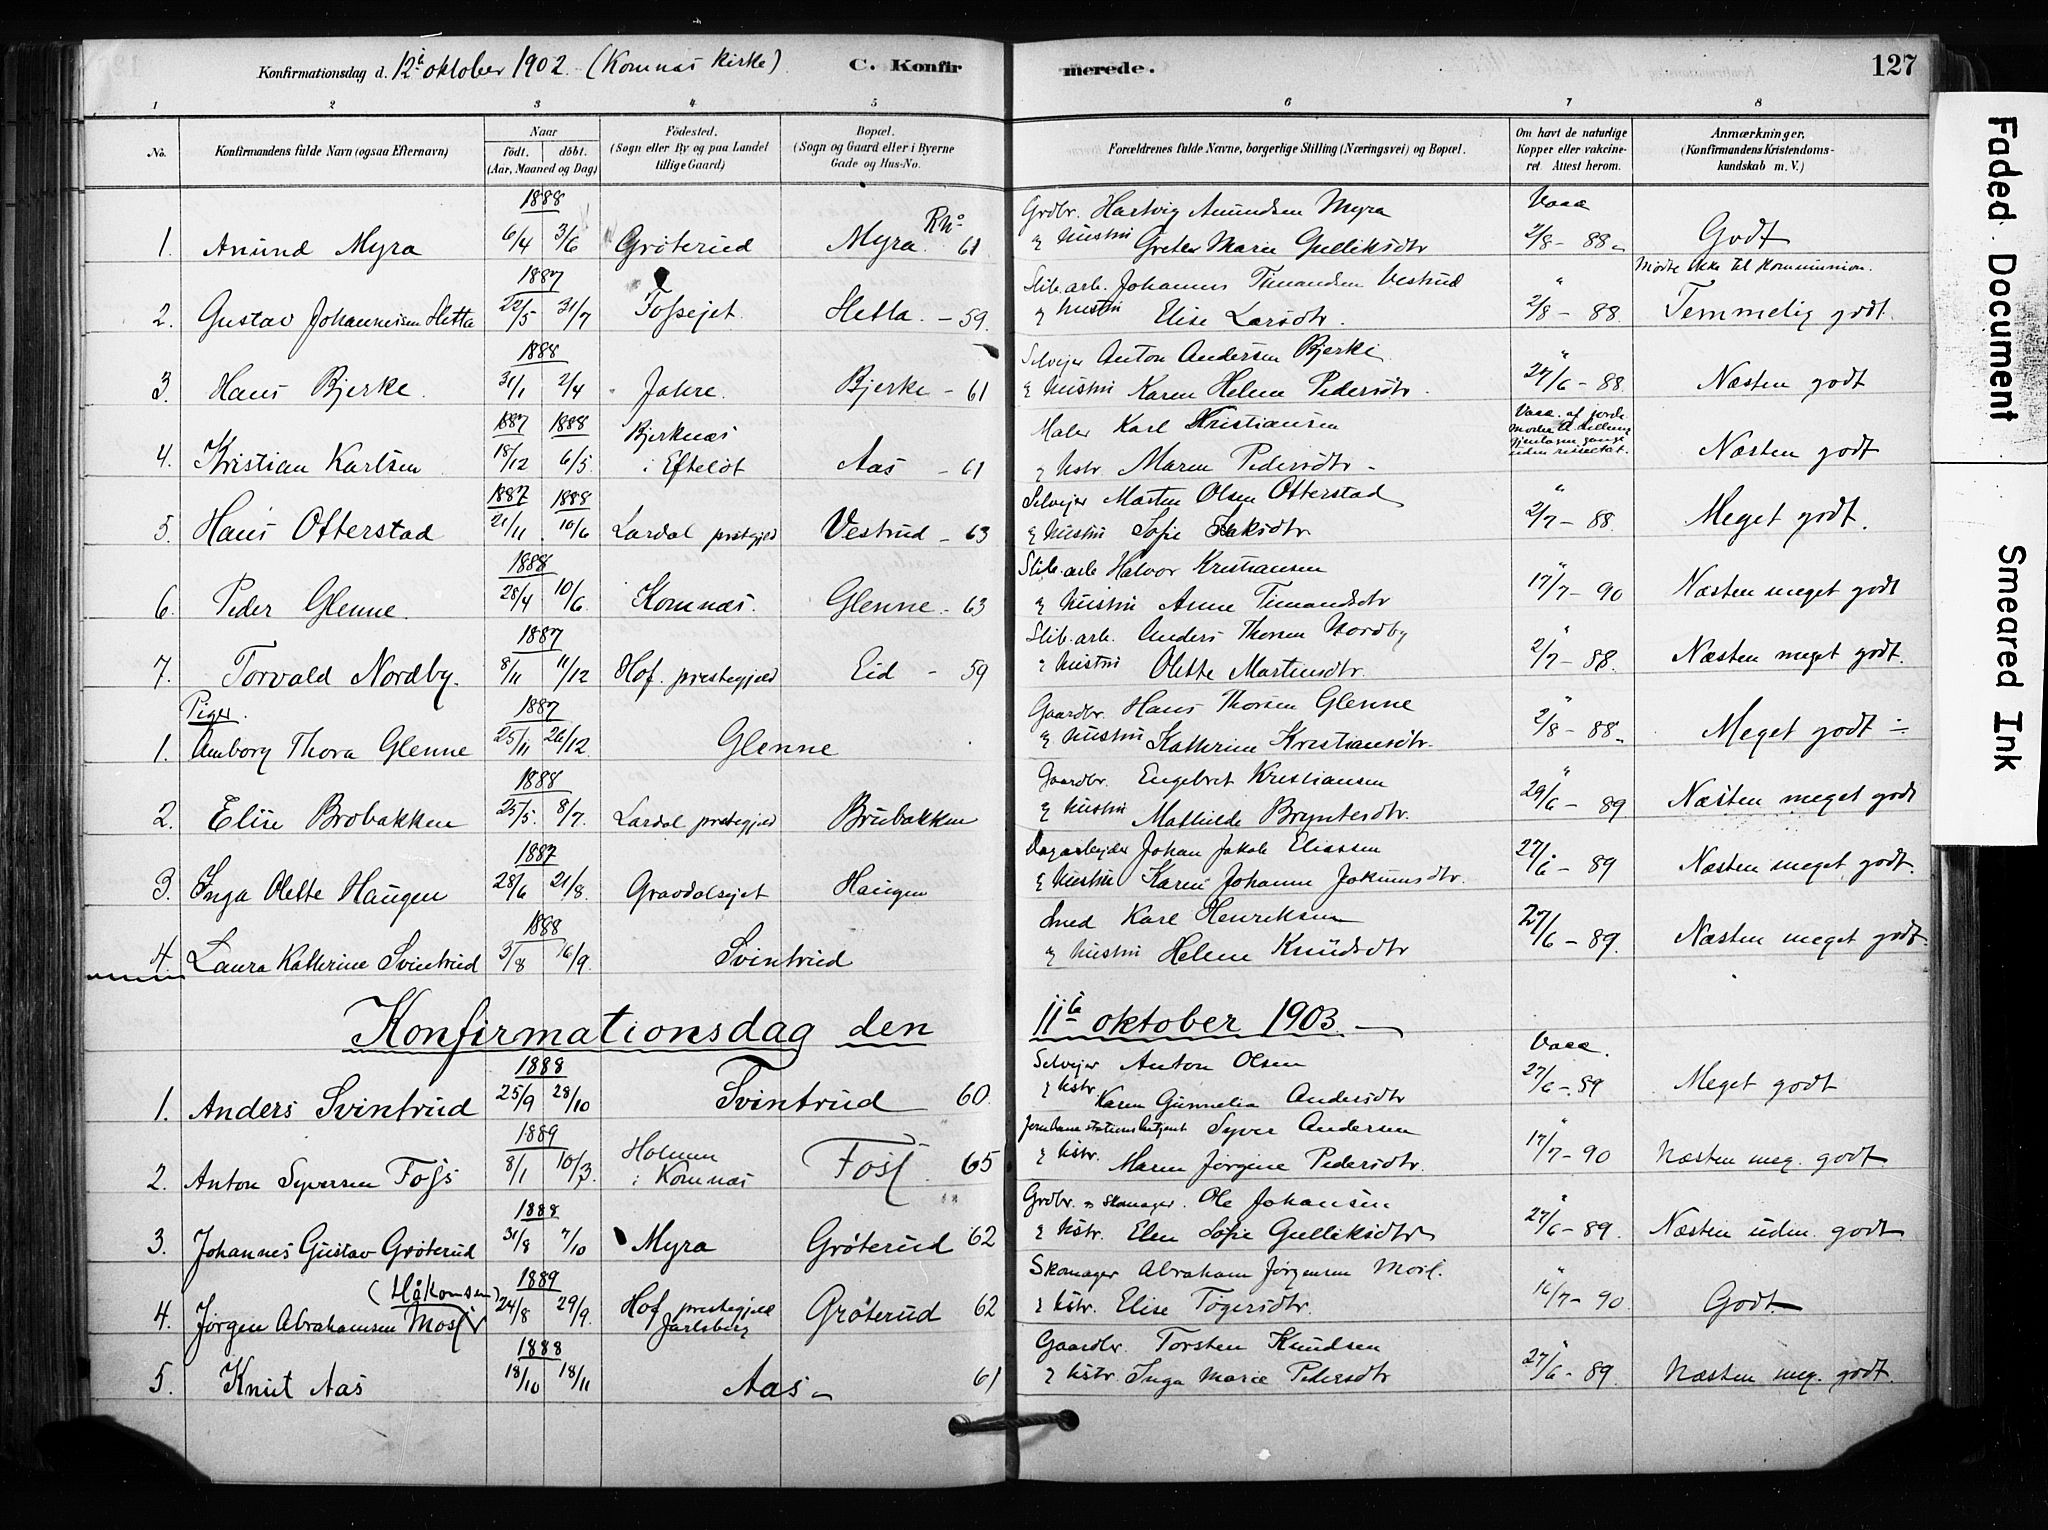 Konfirmationsdag d. 12te oktober 1902. (Komnæs kirke). C. Konfirmerede. 127
1 2 3 4 5 6 7 8
No. Konfirmandens fulde Navn (ogsaa Efternavn) Naar født. døbt. (Aar, Maaned og Dag) Fødested. (Sogn eller By og paa Landet tillige Gaard) Bopæl. (Sogn og Gaard eller i Byerne Gade og Hus-No. Forældrenes fulde Navne, borgerlige Stilling (Næringsvei) og Bopæl. Om havt de naturlige Kopper eller vakcineret. Attest herom. Anmærkninger, (Konfirmandens Kristendomskundskab m. V.)
1888 Grdbr. Hartvig Amundsen Myra Vacc
1. Amund Myra 6/4 3/6 Grøterud Myra. R No 61 & Hustru Grethe Marie Gulliksdtr 2/8 - 88 Godt
1887 Slib.arb. Johannes Timandsen Vestrud " Mødte ikke til kommunion.
2. Gustav Johannessen Hetta 22/5 31/7 Fossejet. Hetta. - 59. & Hustru Elise Larsdtr. 2/8 - 88. Temmelig godt.
1888 Selvejer Anton Andersen Bjerke "
3. Hans Bjerke. 31/1 2/4 Jahre. Bjerke - 61 & Hustru Karen Helene Pedersdtr. 27/6 - 88 Næsten godt
1887 1888 Bjerknæs Maler Karl Kristiansen Vacc. af jorde
moder uden resultat.
4. Kristian Karlsen 18/12 6/5. i Efteløt Aas - 61 & Hstr. Maren Pedersdtr - Næsten godt
1887 1888 Selvejer Morten Olsen Otterstad "
5. Hans Otterstad 21/11 10/6 Lardal prestgjeld Vestrud - 63 & Hustru Sofie Isaksdtr 2/7 - 88. Meget godt.
1888 Slib.arb Halvor Kristiansen "
6. Peder Glenne. 28/4 10/6. Komnæs. Glenne. - 63 & Hustru Anne Timandsdtr 17/7 - 90 Næsten meget godt
1887 Slib.arb. Anders Thorsen Nordby "
7. Torvald Nordby. 8/11 11/12 Hof. prestegjeld Eid - 59 & Hustru Olette Martinsdtr. 2/7 - 88. Næsten meget godt.
Piger. 1887 Gaardbr. Hans Thorsen Glenne "
1. Amborg Thora Glenne 25/11 26/12 Glenne & Hustru Kathrine Kristiansdtr. 2/8 - 88 Meget godt
1888 Gaardbr. Engebret Kristiansen "
2. Elise Brobakken 25/5. 8/7. Lardal prestegjeld Brubakken & Hustru Mathilde Bryntesdtr. 29/6 - 89 Næsten meget godt
1887 Dagarbejder Johan Jakob Eliassen
3. Inga Olette Haugen 28/6 21/8. Gravdalsejet Haugen & Hustru Karen Johanne Jokumsdtr. 27/6 - 89 Næsten meget godt.
1888 Smed Karl Henriksen
4. Laura Kathrine Svintrud 3/8 16/9. Svintrud & Hustru Helene Knudsdtr 27/6 - 89. Næsten meget godt.
Konfirmationsdag den 11te oktober 1903.
1888 Selvejer Anton Olsen Vacc.
1. Anders Svintrud 25/9 28/10 Svintrud 60. & Hstr Karen Gunnelia Andersdtr 27/6 - 89 Meget godt
1889 Holmen Jernbanestationsbetjent Syver Andersen "
2. Anton Syversen Foss 8/1 10/3. i Komnæs Foss. 65 & Hstr. Maren Jørgine Pedersdtr. 17/7 - 90 Næsten meg. godt
1888 Grdbr. & Skomager. Ole Johansen "
3. Johannes Gustav Grøterud 31/8 7/10 Myra Grøterud 62 & Hstr. Elen Sofie Gulliksdtr 27/6 - 89. Næsten uden. godt
(Håkonsen) 1889 Skomager Abraham Jørgensen Moss. "
4. Jørgen Abrahamsen Moss 24/8 29/9. Hof prestegjeld Jarlsberg Grøterud 62 & Hstr. Elise Tøgersdtr. 16/7 - 90 Godt
1888 Gaardbr. Torsten Knudsen "
5. Knut Aas 18/10 18/11 Aas - 61 & Hstr. Inga Marie Pedersdtr 27/6 - 89. Næsten meg. godt.
Faded Document
Smeared Ink